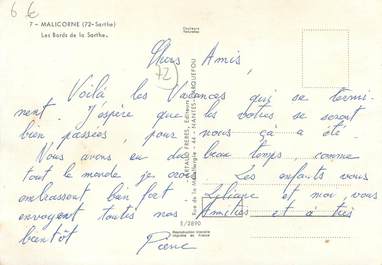 6 €
7 - MALICORNE (72-Sarthe)
Les Bords de la Sarthe.
Couleurs
Naturelles
72
Chers Amis,
Voilà les Vacances qui se termi-
nent. J'espère que les votres se seront
bien passées, pour nous ça a été.
Nous avons eu du beau temps comme
tout le monde je crois. Les enfants vous
embrassent bien fort Lyliane et moi vous
envoyent toutes nos Amitiés et à très
bientôt Pierre
ARTAUD FRERES, Editeurs
Rue de la Métallurgie - 44 - NANTES-CARQUEFOU
S/2890
Reproduction interdite
Imprimé en France